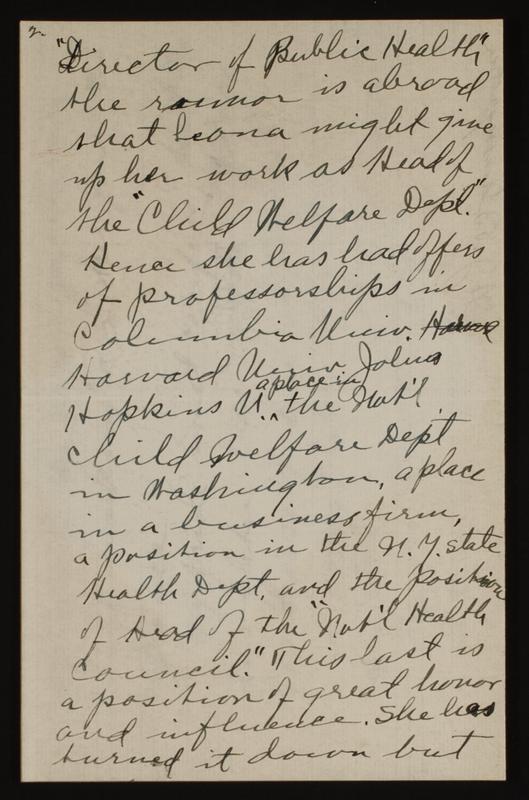 2.
"Director of Public Health"
the rumor is abroad
that Leona might give
up her work as Head of
the "Child Welfare Dept."
Hence she has had offers
of professorships in
Columbia Univ.
Harvard Univ. Johns
Hopkins U. a place in the Nat'l
Child Welfare Dept
in Washington, a place
in a business firm,
a position in the N.Y. State
Health Dept, and the position
of Head of the "Nat'l Health
Council." This last is
a position of great honor
and influence. She has
turned it down but